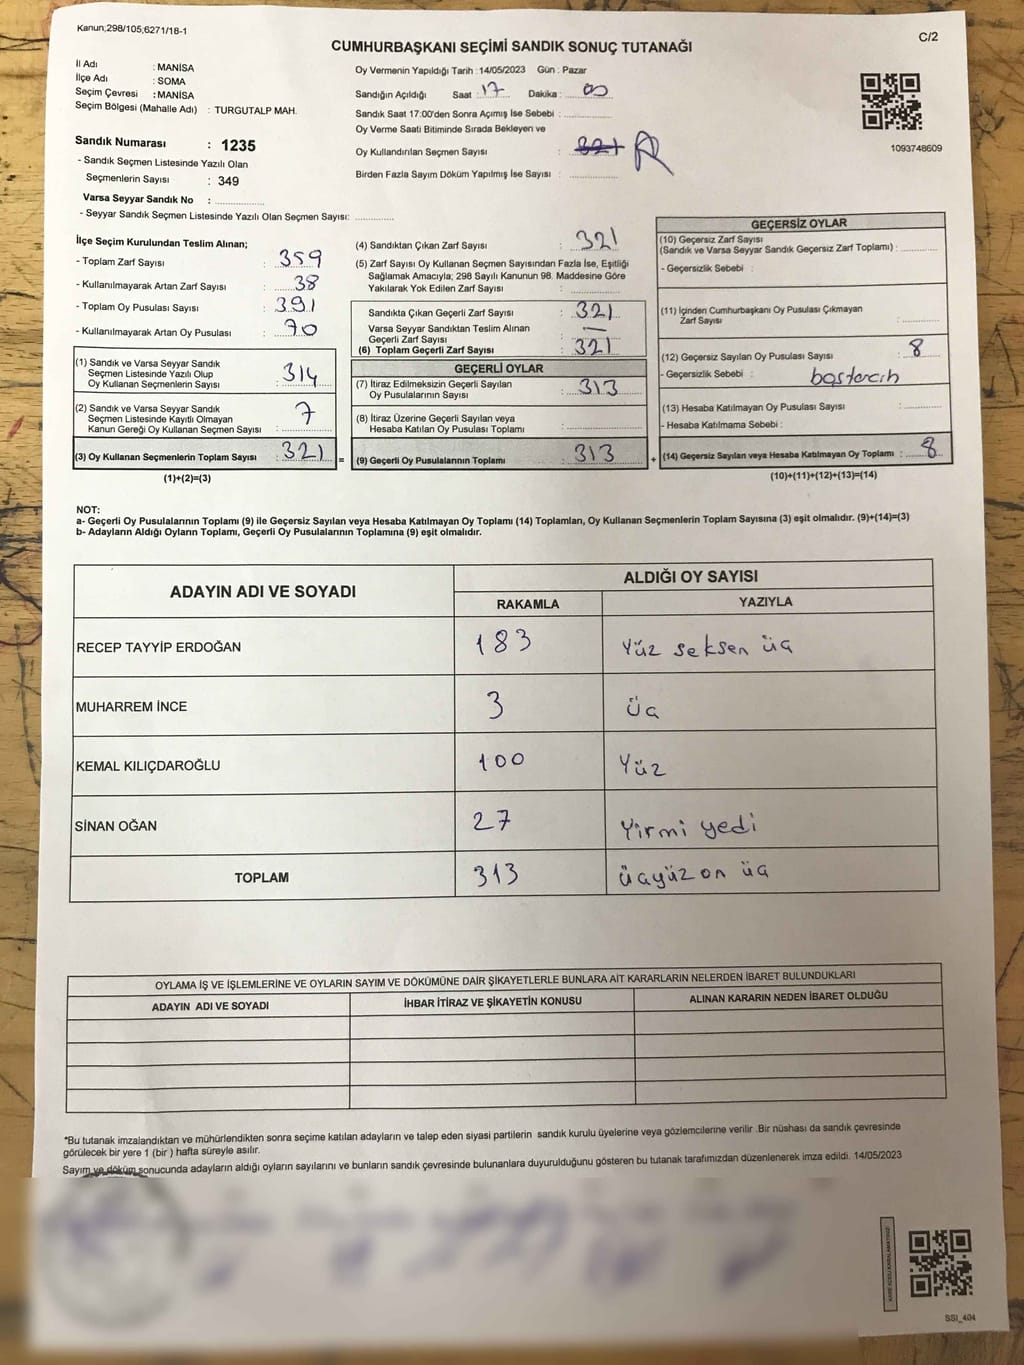 Kanun;298/105;6271/18-1
C/2
CUMHURBAŞKANI SEÇİMİ SANDIK SONUÇ TUTANAĞI
İl Adı : MANİSA
İlçe Adı : SOMA
Seçim Çevresi : MANİSA
Seçim Bölgesi (Mahalle Adı) : TURGUTALP MAH.
Sandık Numarası : 1235
- Sandık Seçmen Listesinde Yazılı Olan
Seçmenlerin Sayısı : 349
Varsa Seyyar Sandık No :
- Seyyar Sandık Seçmen Listesinde Yazılı Olan Seçmen Sayısı:
Oy Vermenin Yapıldığı Tarih : 14/05/2023 Gün : Pazar
Sandığın Açıldığı Saat : 17 Dakika : 00
Sandık Saat 17:00'den Sonra Açımış İse Sebebi :
Oy Verme Saati Bitiminde Sırada Bekleyen ve
Oy Kullandırılan Seçmen Sayısı :
Birden Fazla Sayım Döküm Yapılmış İse Sayısı :
1093748609
İlçe Seçim Kurulundan Teslim Alınan;
- Toplam Zarf Sayısı : 359
- Kullanılmayarak Artan Zarf Sayısı : 38
- Toplam Oy Pusulası Sayısı : 391
- Kullanılmayarak Artan Oy Pusulası : 70
(1) Sandık ve Varsa Seyyar Sandık
Seçmen Listesinde Yazılı Olup
Oy Kullanan Seçmenlerin Sayısı : 314
(2) Sandık ve Varsa Seyyar Sandık
Seçmen Listesinde Kayıtlı Olmayan
Kanun Gereği Oy Kullanan Seçmen Sayısı : 7
(3) Oy Kullanan Seçmenlerin Toplam Sayısı : 321 =
(1)+(2)=(3)
(4) Sandıktan Çıkan Zarf Sayısı : 321
(5) Zarf Sayısı Oy Kullanan Seçmen Sayısından Fazla İse, Eşitliği
Sağlamak Amacıyla; 298 Sayılı Kanunun 98. Maddesine Göre
Yakılarak Yok Edilen Zarf Sayısı :
Sandıkta Çıkan Geçerli Zarf Sayısı : 321
Varsa Seyyar Sandıktan Teslim Alınan
Geçerli Zarf Sayısı : —
(6) Toplam Geçerli Zarf Sayısı : 321
GEÇERLİ OYLAR
(7) İtiraz Edilmeksizin Geçerli Sayılan
Oy Pusulalarının Sayısı : 313
(8) İtiraz Üzerine Geçerli Sayılan veya
Hesaba Katılan Oy Pusulası Toplamı :
(9) Geçerli Oy Pusulalarının Toplamı : 313 +
GEÇERSİZ OYLAR
(10) Geçersiz Zarf Sayısı
(Sandık ve Varsa Seyyar Sandık Geçersiz Zarf Toplamı) :
- Geçersizlik Sebebi :
(11) İçinden Cumhurbaşkanı Oy Pusulası Çıkmayan
Zarf Sayısı :
(12) Geçersiz Sayılan Oy Pusulası Sayısı : 8
- Geçersizlik Sebebi : boştercih
(13) Hesaba Katılmayan Oy Pusulası Sayısı :
- Hesaba Katılmama Sebebi :
(14) Geçersiz Sayılan veya Hesaba Katılmayan Oy Toplamı : 8
(10)+(11)+(12)+(13)=(14)
NOT:
a- Geçerli Oy Pusulalarının Toplamı (9) ile Geçersiz Sayılan veya Hesaba Katılmayan Oy Toplamı (14) Toplamları, Oy Kullanan Seçmenlerin Toplam Sayısına (3) eşit olmalıdır. (9)+(14)=(3)
b- Adayların Aldığı Oyların Toplamı, Geçerli Oy Pusulalarının Toplamına (9) eşit olmalıdır.
ADAYIN ADI VE SOYADI ALDIĞI OY SAYISI
RAKAMLA YAZIYLA
RECEP TAYYİP ERDOĞAN 183 Yüz seksen üç
MUHARREM İNCE 3 üç
KEMAL KILIÇDAROĞLU 100 Yüz
SİNAN OĞAN 27 Yirmi yedi
TOPLAM 313 üçyüz on üç
OYLAMA İŞ VE İŞLEMLERİNE VE OYLARIN SAYIM VE DÖKÜMÜNE DAİR ŞİKAYETLERLE BUNLARA AİT KARARLARIN NELERDEN İBARET BULUNDUKLARI
ADAYIN ADI VE SOYADI İHBAR İTİRAZ VE ŞİKAYETİN KONUSU ALINAN KARARIN NEDEN İBARET OLDUĞU
*Bu tutanak imzalandıktan ve mühürlendikten sonra seçime katılan adayların ve talep eden siyasi partilerin sandık kurulu üyelerine veya gözlemcilerine verilir .Bir nüshası da sandık çevresinde
görülecek bir yere 1 (bir ) hafta süreyle asılır.
Sayım ve döküm sonucunda adayların aldığı oyların sayılarını ve bunların sandık çevresinde bulunanlara duyurulduğunu gösteren bu tutanak tarafımızdan düzenlenerek imza edildi. 14/05/2023
SSI_404